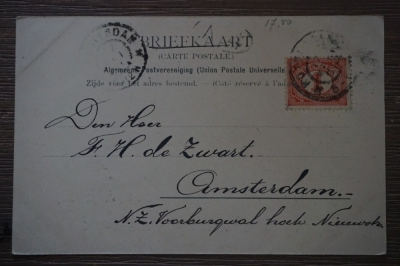 17,50
BRIEFKAART
(CARTE POSTALE)
Algemeene Postvereeniging (Union Postale Universelle
Zijde voor het adres bestemd. — (Coté réservé à l'ad
Den Heer
F. H. de Zwart.
Amsterdam.-
N. Z. Voorburgwal hoek